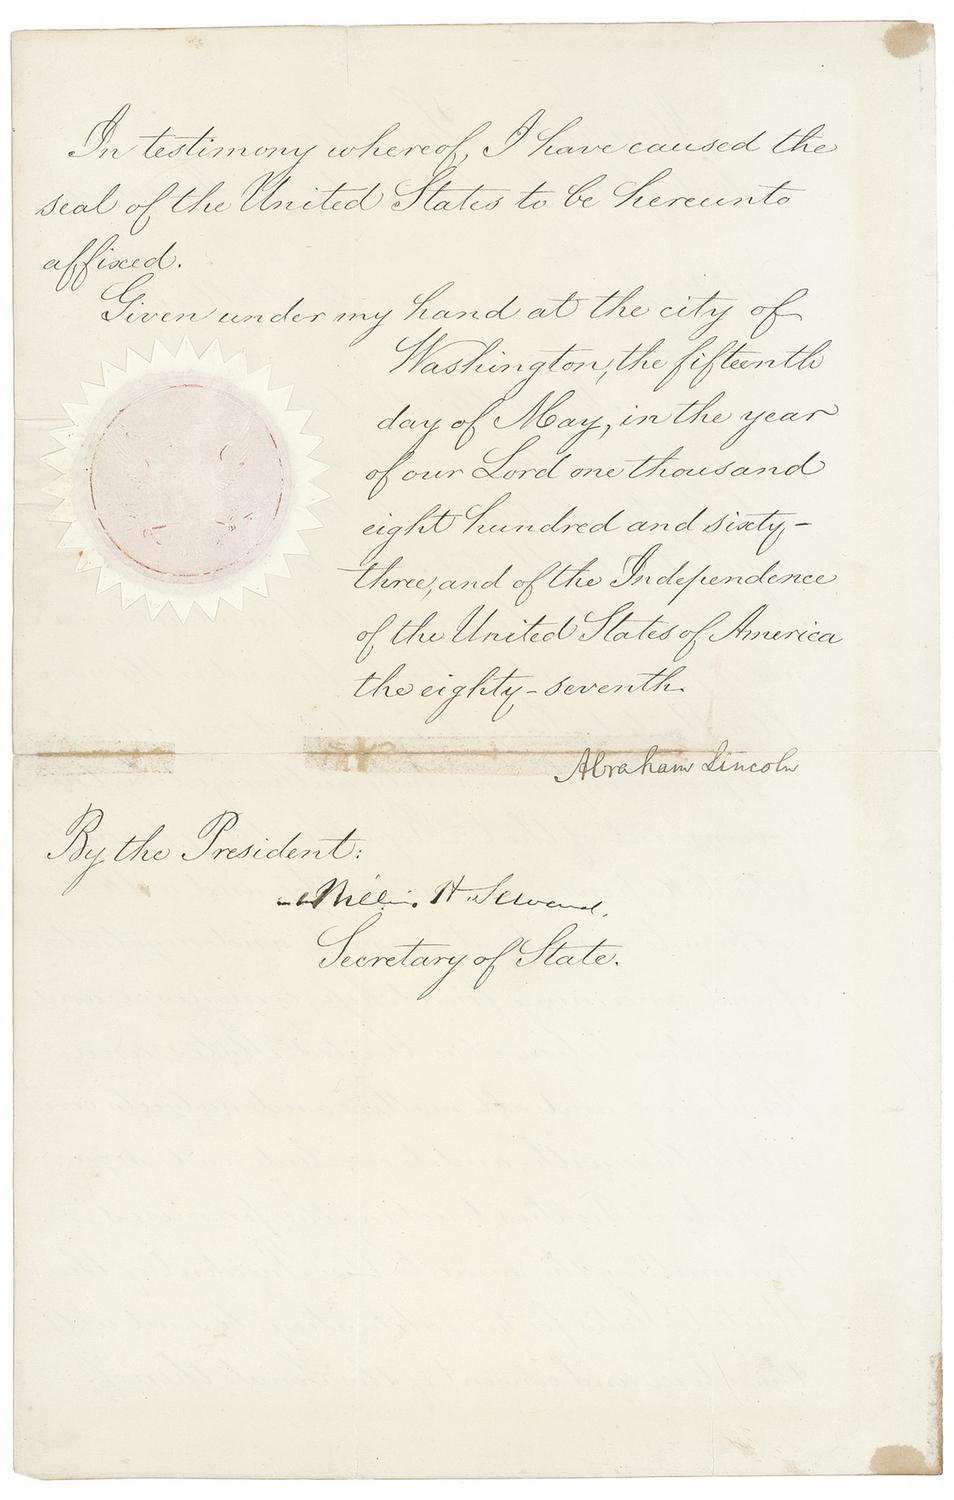 In testimony whereof, I have caused the
seal of the United States to be hereunto
affixed.
Given under my hand at the city of
Washington, the fifteenth
day of May, in the year
of our Lord one thousand
eight hundred and sixty-
three, and of the Independence
of the United States of America
the eighty-seventh.
Abraham Lincoln
By the President:
William H. Seward.
Secretary of State.